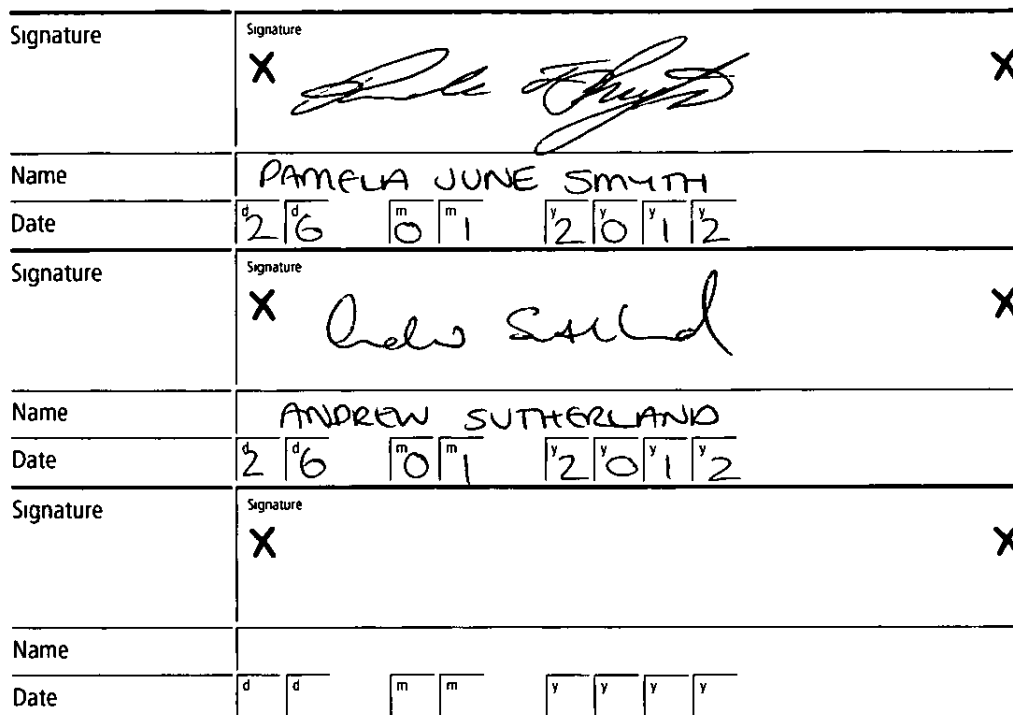 Signature
Signature
X X
Name PAMELA JUNE SMYTH
Date d2 d6 m0 m1 y2 y0 y1 y2
Signature
Signature
X Andrew Sutherland X
Name ANDREW SUTHERLAND
Date d2 d6 m0 m1 y2 y0 y1 y2
Signature
Signature
X X
Name
Date d d m m y y y y